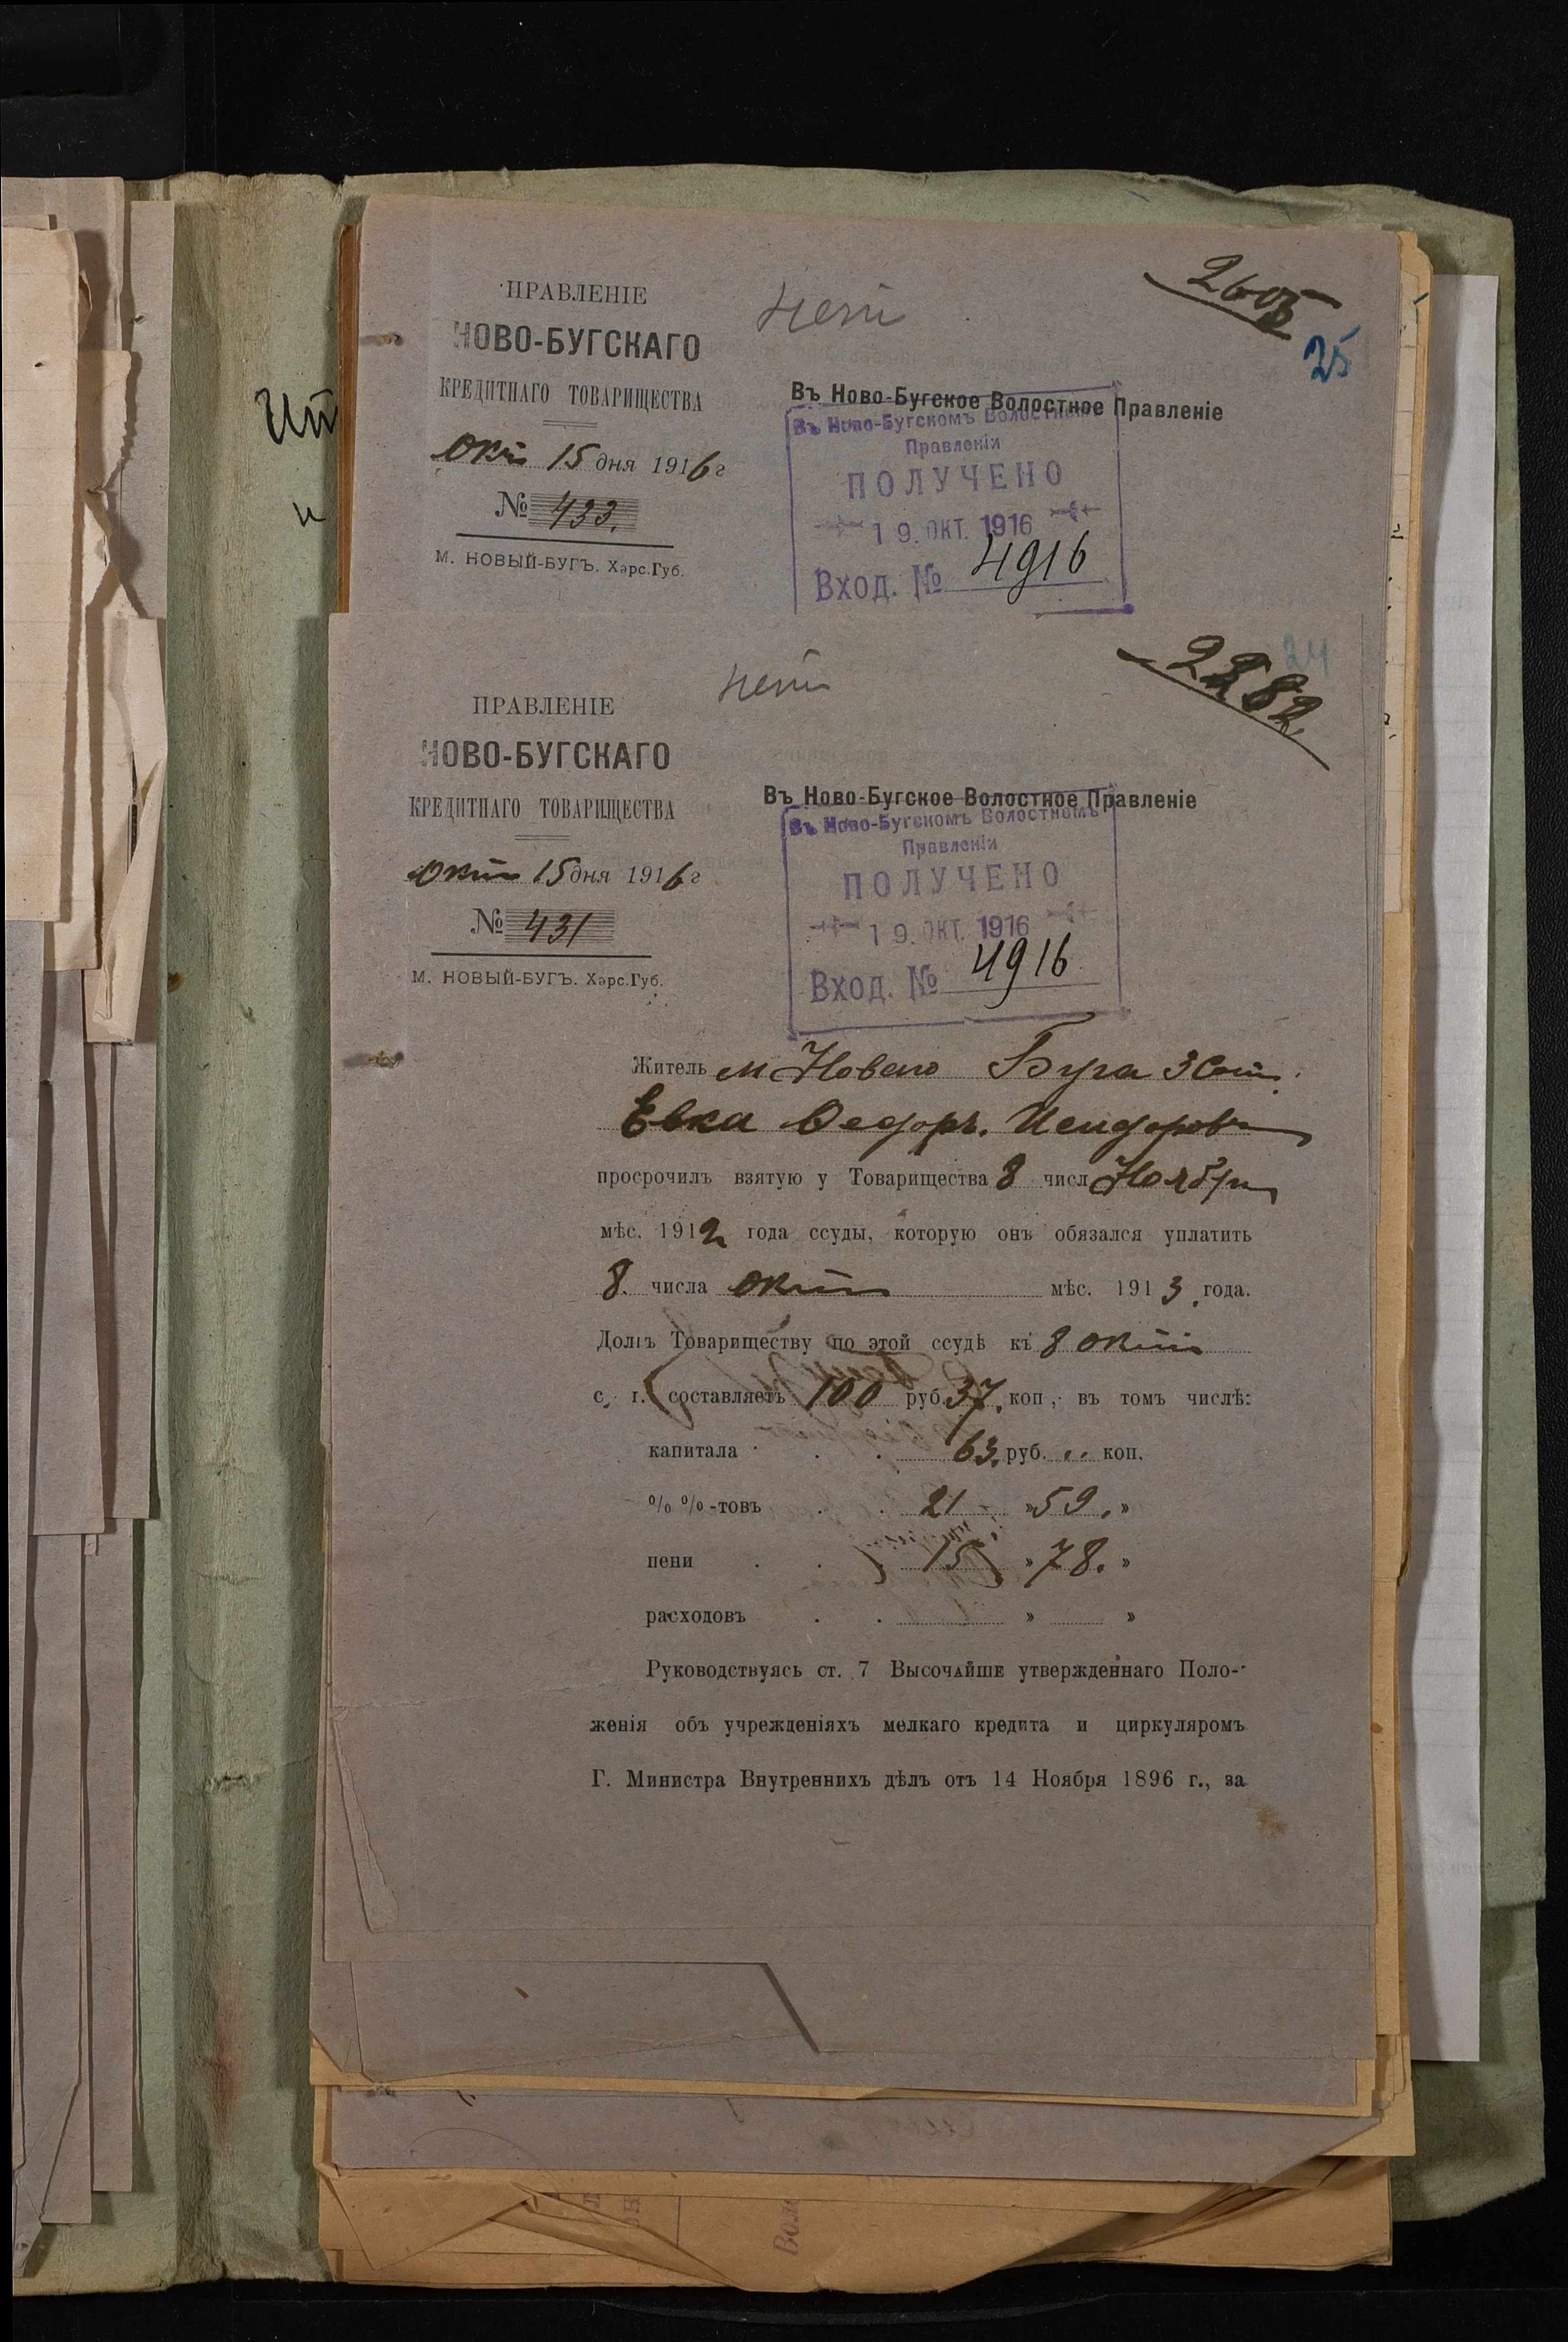 ПРАВЛЕНІЕ
НОВО-БУГСКАГО
КРЕДИТНАГО ТОВАРИЩЕСТВА
Окт 15 дня 1916 г
№ 433.
М. НОВЫЙ-БУГЪ. Хэрс.Губ.
нет
2605
25
Въ Ново-Бугское Волостное Правленіе
Въ Ново-Бугскомъ Волостномъ
Правленіи
ПОЛУЧЕНО
19. ОКТ. 1916
Вход. № 4916
Ит
и
ПРАВЛЕНІЕ
НОВО-БУГСКАГО
КРЕДИТНАГО ТОВАРИЩЕСТВА
Окт 15 дня 1916 г
№ 431
М. НОВЫЙ-БУГЪ. Хэрс.Губ.
нет
24
2282
Въ Ново-Бугское Волостное Правленіе
Въ Ново-Бугскомъ Волостномъ
Правленіи
ПОЛУЧЕНО
19. ОКТ. 1916
Вход. № 4916
Житель м Новаго Буга 3 Сот.
Евка Федоръ. Исидоровъ
просрочилъ взятую у Товарищества 8 числ Ноября
мѣс. 1912 года ссуды, которую онъ обязался уплатить
8. числа окт мѣс. 1913 года.
Долгъ Товариществу по этой ссудѣ къ 8 окт
с. г. составляетъ 100 руб. 37. коп., въ томъ числѣ:
капитала . . 63. руб. „ коп.
% %-товъ . . 21 - » 59. »
пени . . 15 » 78. »
расходовъ . . » »
Руководствуясь ст. 7 Высочайше утвержденнаго Поло-
женія объ учрежденіяхъ мелкаго кредита и циркуляромъ
Г. Министра Внутреннихъ дѣлъ отъ 14 Ноября 1896 г., за